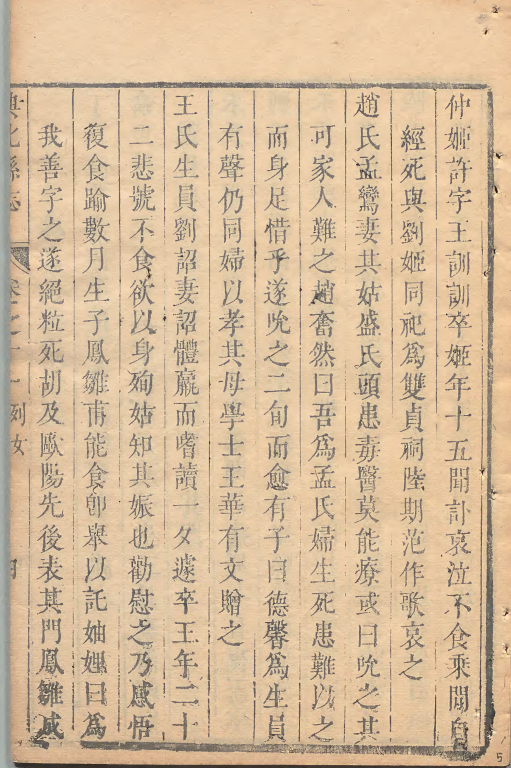 仲姬許字王訓訓卒姬年十五聞訃哀泣不食乘間自
經死與劉姬同祀爲雙貞祠陸期范作歌哀之
趙氏孟鸞妻其姑盛氏頭患毒醫莫能療或曰吮之其
可家人難之趙奮然曰吾爲孟氏婦生死患難以之
而身足惜乎遂吮之二旬而愈有子曰德馨爲生員
有聲仍同婦以孝其母學士王華有文贈之
王氏生員劉詔妻詔體羸而嗜讀一夕遽卒王年二十
二悲號不食欲以身殉姑知其娠也勸慰之乃感悟
復食踰數月生子鳳雛甫能食卽舉以託妯娌曰爲
我善字之遂絕粒死胡及歐陽先後表其門鳳雛感
興化縣志 卷之十一 列女
5